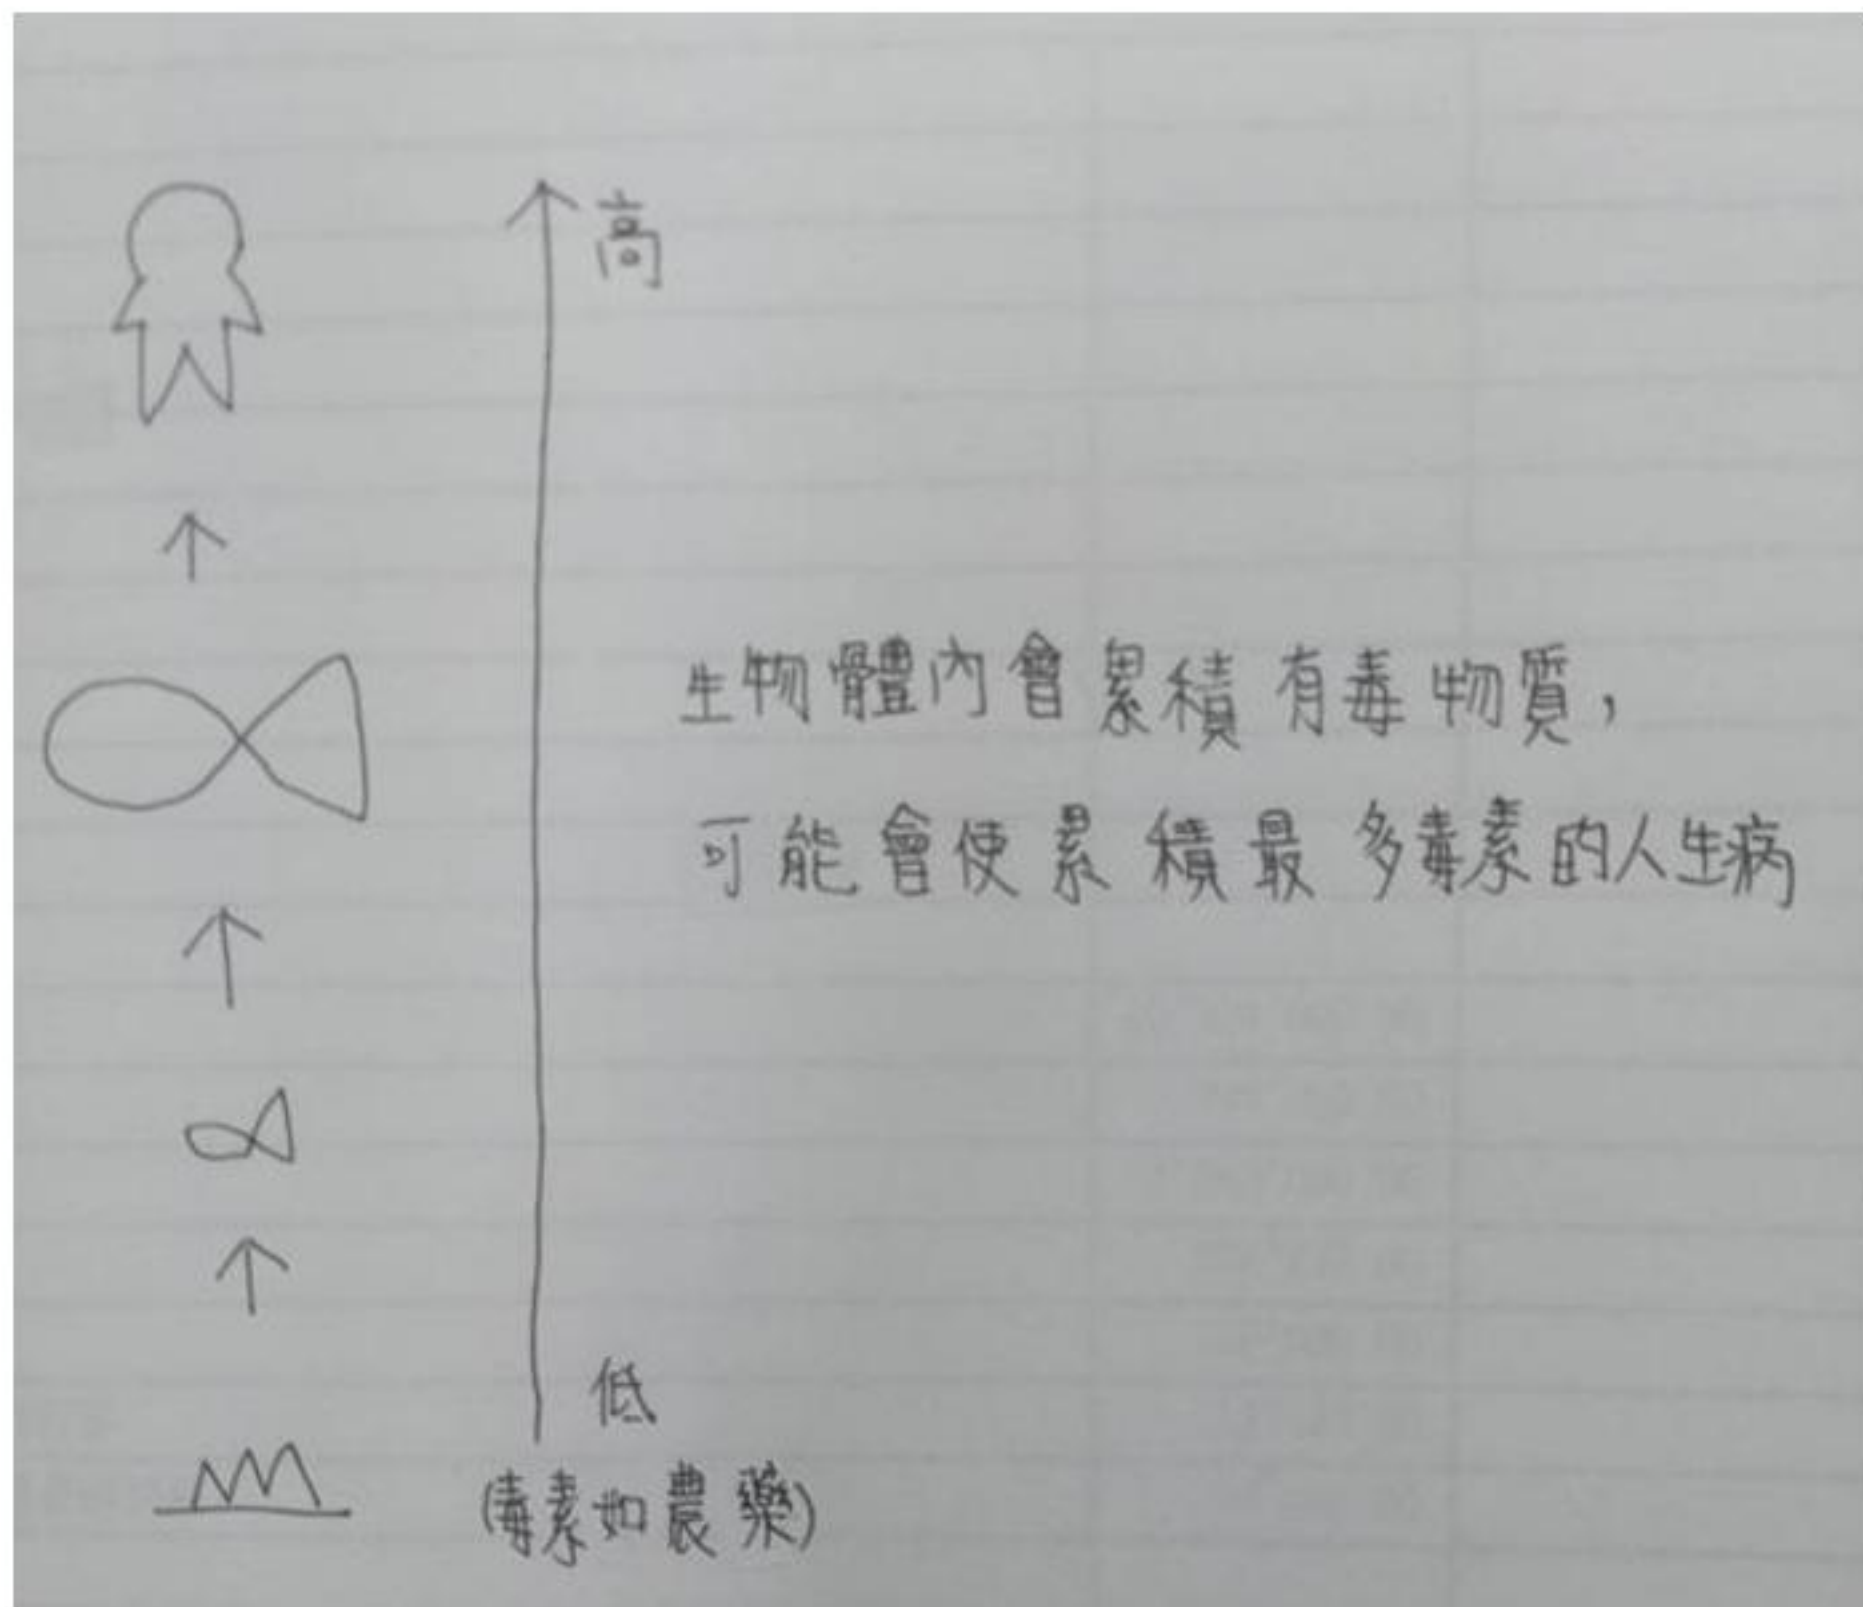 高
生物體內會累積有毒物質，
可能會使累積最多毒素的人生病
低
(毒素如農藥)